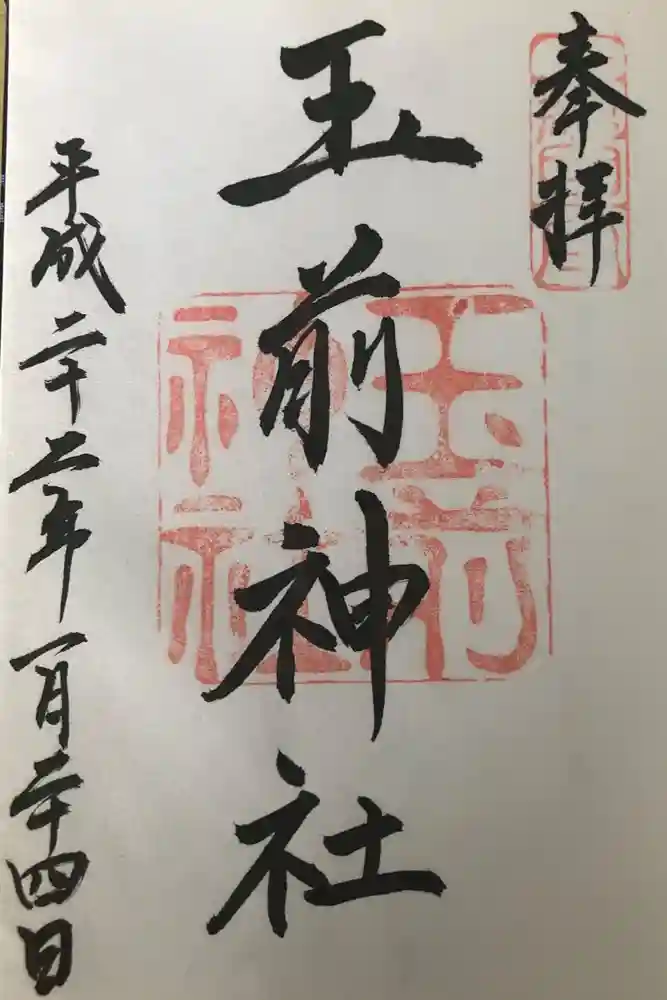 奉拝
玉前神社
玉前神社
平成二十二年一月二十四日